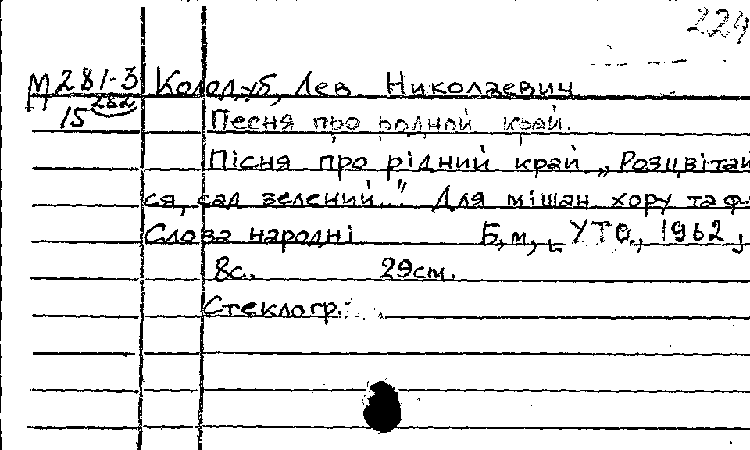 224
М 281-3 Колодуб, Лев Николаевич
15 282
Песня про родной край.
Пісня про рідний край „Розцвітай
ся, сад зелений..." Для мішан хору та ф-
Слова народні Б, м, УТО, 1962,
8с. 29см.
Стеклогр.